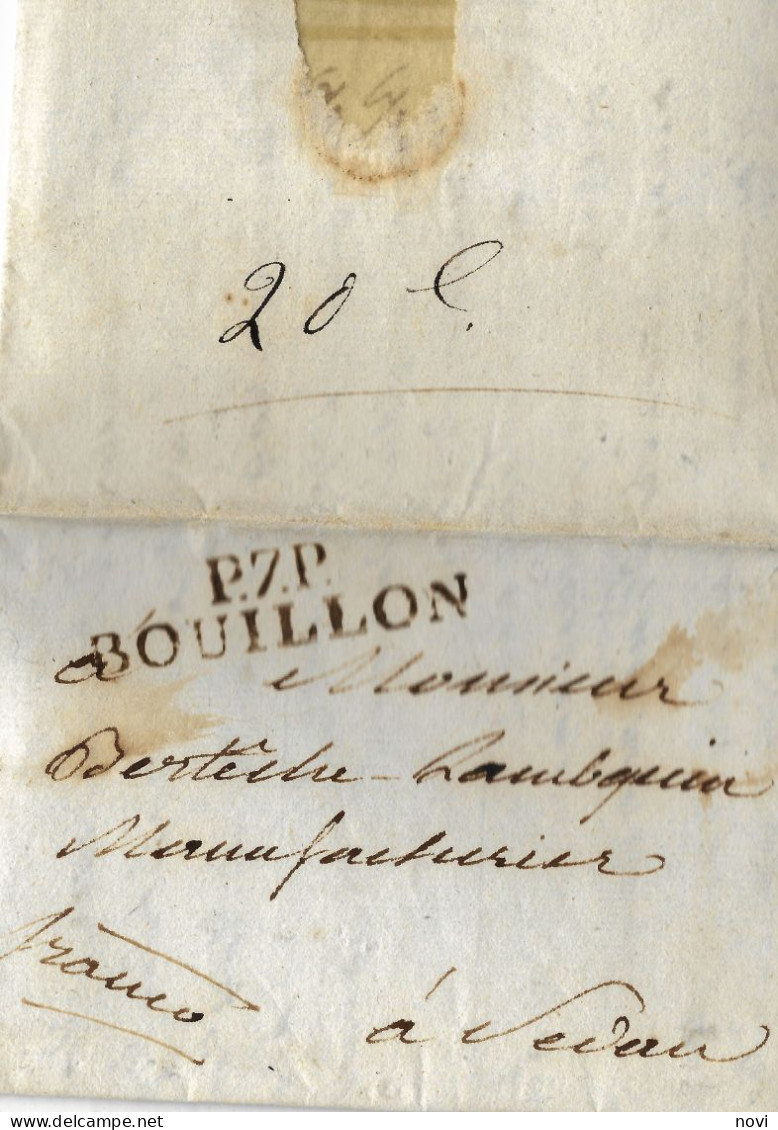 20 c.
P.7.P.
BOUILLON
à Monsieur
Bertèche-Lambquin
Manufacturier
franco
à Sedan
novi